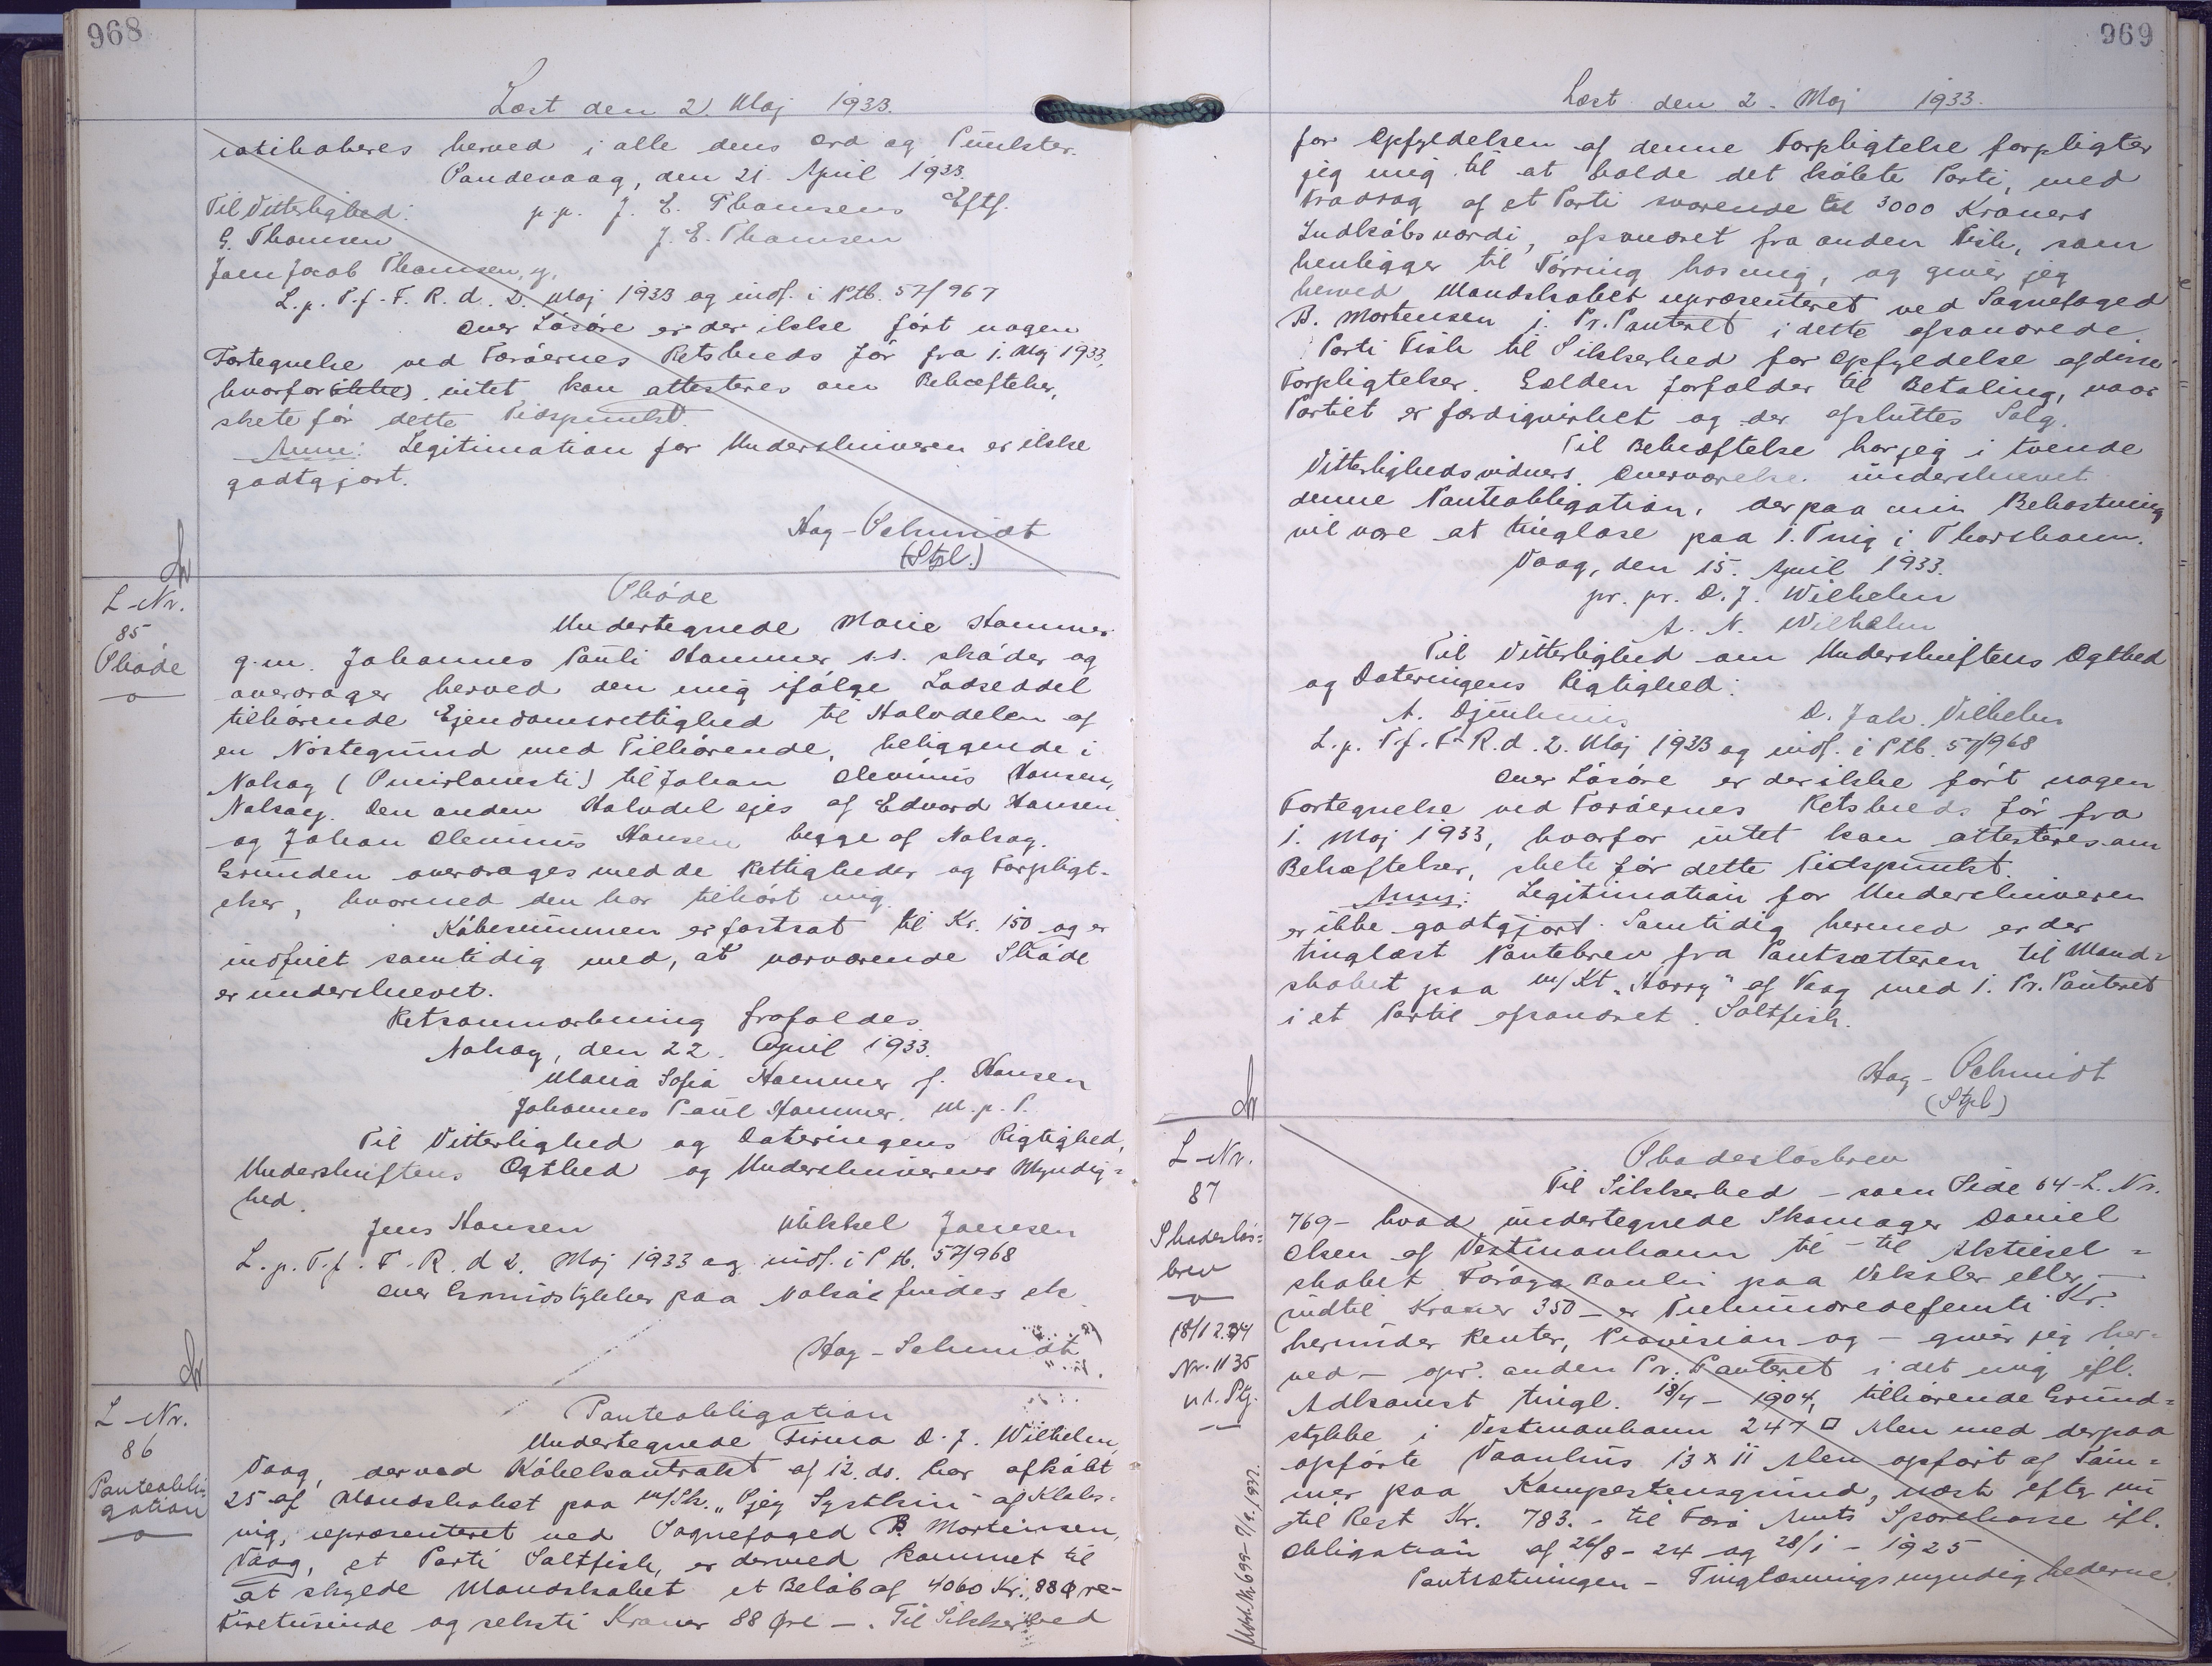 968
Læst den 2. Maj 1933.
ratihaberes herved i alle dens Ord og Punkter.
Sandevaag, den 21. April 1933.
Til Vitterlighed: p.p. J. E. Thomsens Eftf.
G. Thomsen J. E. Thomsen
Joen Jacob Thomsen, y.
L. p. T. f. F. R. d. 2. Maj 1933 og indf. i Ptb. 57/967
Over Løsøre er der ikke ført nogen
Fortegnelse ved Færøernes Retskreds før fra 1. Maj 1933,
hvorfor (ikke) intet kan attesteres om Behæftelser,
skete før dette Tidspunkt.
Anm: Legitimation for Underskriveren er ikke
godtgjort.
Hag-Schmidt
(Stpl.)
L-Nr.
85
Skøde
Skøde
Undertegnede Marie Hammer
g.m. Johannes Pauli Hammer s.s. skøder og
overdrager herved den mig ifølge Lodseddel
tilhørende Ejendomsrettighed til Halvdelen af
en Nøstegrund med Tilhørende, beliggende i
Nolsøy til Johan Clemens Hansen,
Nolsøy. Den anden Halvdel ejes af Edvard Hansen
og Johan Clemens Hansen begge af Nolsøy.
Grunden overdrages med de Rettigheder og Forpligt-
elser, hvormed den har tilhørt mig.
Købesummen er fastsat til Kr. 150 og er
indfriet samtidig med, at nærværende Skøde
er underskrevet.
Retsanmærkning frafaldes.
Nolsøy, den 22. April 1933.
Maria Sofia Hammer f. Hansen
Johannes Paul Hammer. m.p.P.
Til Vitterlighed og Dateringens Rigtighed,
Underskriftens Ægthed og Underskriverens Myndig=
hed.
Jens Hansen Mikkel Joensen
L. p. T. f. F. R. d. 2. Maj 1933 og indf. i Ptb. 57/968
Over Grundstykker paa Nolsø findes ek
Hag-Schmidt
L-Nr.
86
Panteobli-
gation
Panteobligation
Undertegnede Firma D. J. Wilhelm,
Vaag, der ved Købekontrakt af 12. ds. har afkøbt
25 af Mandskabet paa m/Sk. „ Systkin" af Klaks-
vig, repræsenteret ved Sognefoged B. Mortensen,
Vaag, et Parti Saltfisk, er dermed kommet til
at skylde Mandskabet et Beløb af 4060 Kr. 88 Øre-
Firetusinde og seksti Kroner 88 Øre -. Til Sikkerhed
969
Læst den 2. Maj 1933.
for Opfyldelsen af denne Forpligtelse forpligter
jeg mig til at holde det købte Parti, med
Fradrag af et Parti svarende til 3000 Kroners
Indkøbsværdi, afsondret fra anden Fisk, som
henligger til Tørring hos mig, og giver jeg
herved Mandskabet repræsenteret ved Sognefoged
B. Mortensen 1. Pr. Panteret i dette afsondrede
Parti Fisk til Sikkerhed for Opfyldelse af disse
Forpligtelser. Gælden forfalder til Betaling, naar
Partiet er færdigvirket og der afsluttes Salg.
Til Bekræftelse har jeg i tvende
Vitterlighedsvidners Overværelse underskrevet
denne Panteobligation, der paa min Bekostning
vil være at tinglæse paa 1. Ting i Thorshavn.
Vaag, den 15. April 1933.
pr. pr. D. J. Wilhelm
A. N. Wilhelm
Til Vitterlighed om Underskriftens Ægthed
og Dateringens Rigtighed:
A. Djurhuus D. Jak. Vilhelm
L. p. T. f. F. R. d. 2. Maj 1933 og indf. i Ptb. 57/968
Over Løsøre er der ikke ført nogen
Fortegnelse ved Færøernes Retskreds før fra
1. Maj 1933, hvorfor intet kan attesteres om
Behæftelser, skete før dette Tidspunkt.
Anm: Legitimation for Underskriveren
er ikke godtgjort. Samtidig hermed er der
tinglæst Pantebrev fra Pantsætteren til Mand=
skabet paa m/Kt „Harry" af Vaag med 1. Pr. Panteret
i et Parti afsondret Saltfisk.
Hag-Schmidt
(Stpl)
L-Nr.
87
Skadesløs=
brev
18/12.34
Nr. 1135
Skadesløsbrev
Til Sikkerhed - som Side 64-L. Nr.
769- hvad undertegnede Skomager Daniel
Olsen af Vestmanhavn til - til Aktiesel=
skabet Føroya Banki paa Veksler eller -
indtil Kroner 350 - er Trehundredefemti Kr.
herunder Renter, Provision og - giver jeg her-
ved - opr. anden Pr. Panteret i det mig ifl.
Adkomst tingl. 18/4 - 1904, tilhørende Grund=
stykke i Vestmanhavn 247 □ Alen med derpaa
opførte Vaanhus 13 x 11 Alen opført af Tøm=
mer paa Kampestensgrund, næst efter nu
til Rest Kr. 783.- til Færø Amts Sparekasse ifl.
Obligation af 26/8 - 24 og 28/1 - 1925
Pantsætningen - Tinglæsningsmyndighederne